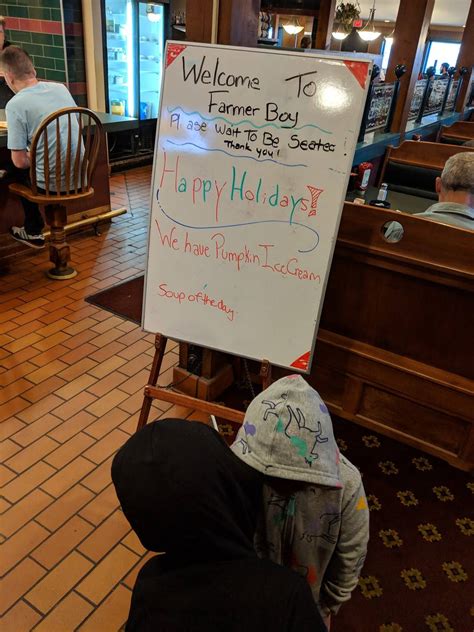 Welcome To
Farmer Boy
Please Wait To Be Seated.
Thank you!
Happy Holidays!
We have Pumpkin Ice Cream
Soup of the day